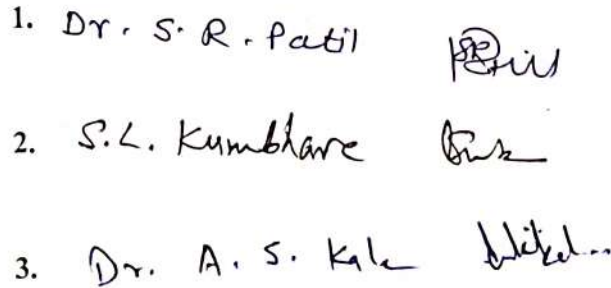 1. Dr. S. R. Patil
2. S. L. Kumbhare
3. Dr. A. S. Kale